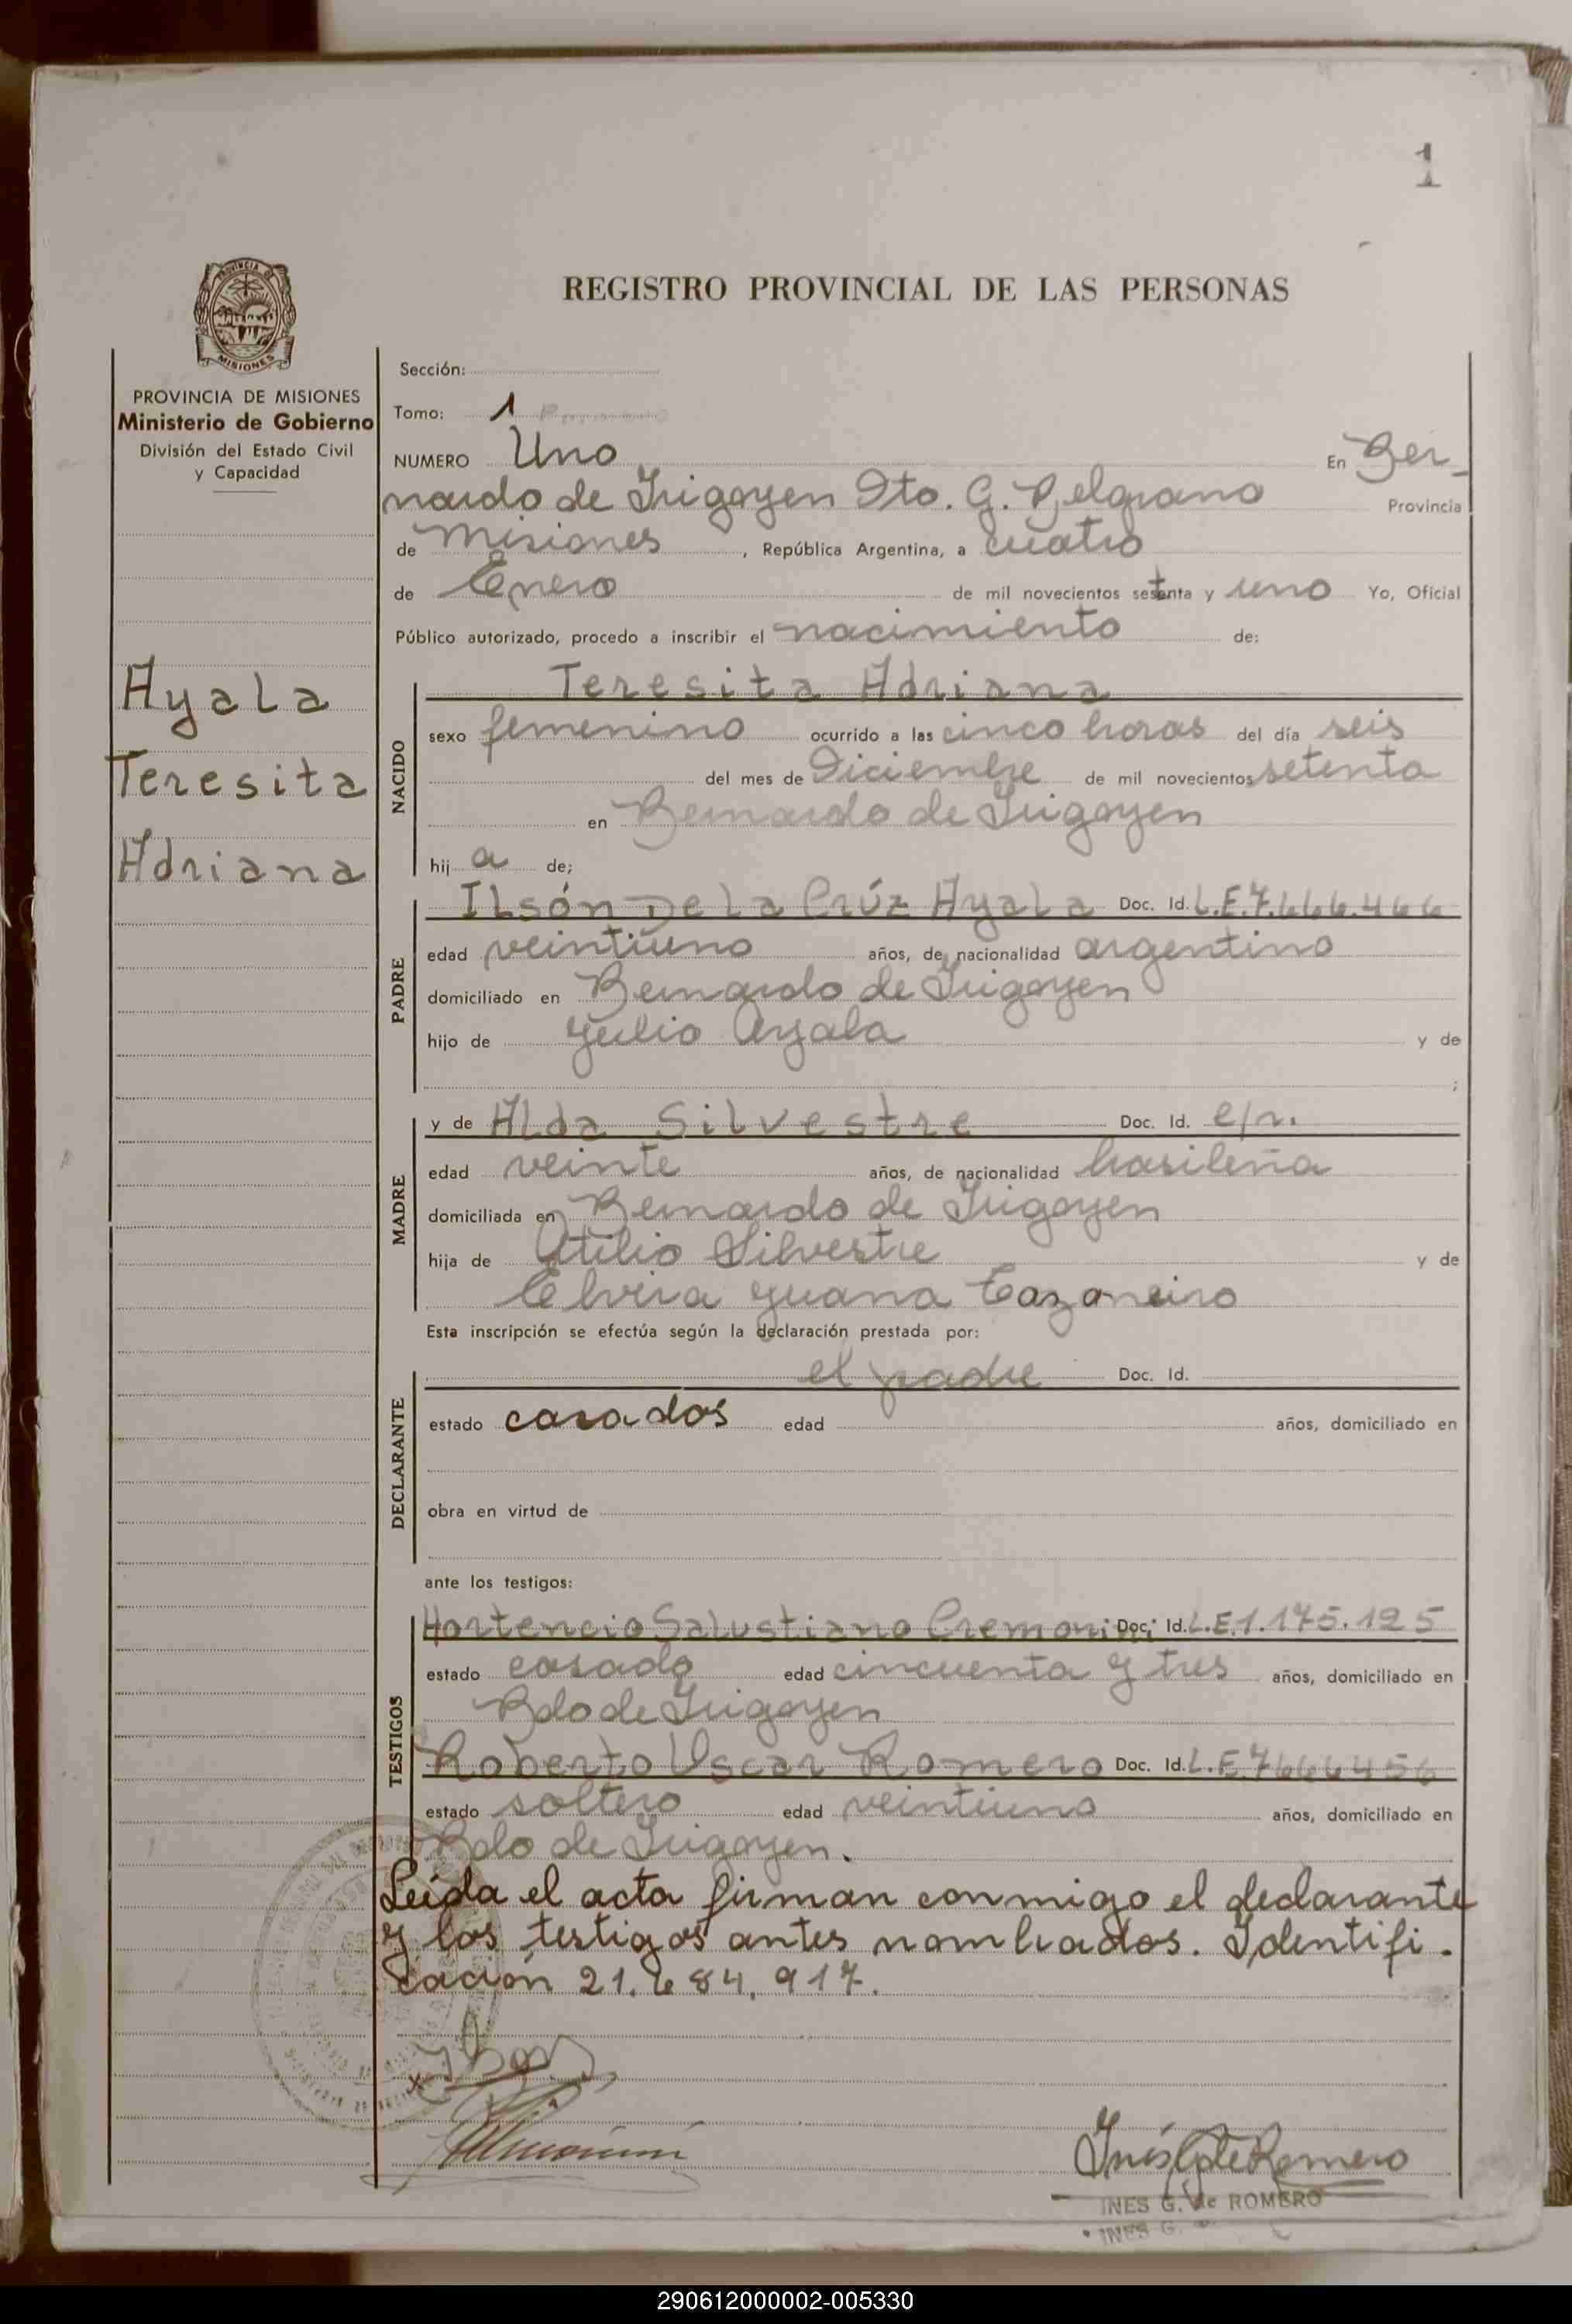 1
REGISTRO PROVINCIAL DE LAS PERSONAS
PROVINCIA DE MISIONES
PROVINCIA DE MISIONES
Ministerio de Gobierno
División del Estado Civil
y Capacidad
Ayala
Teresita
Adriana
Sección:
Tomo: 1
NUMERO Uno En Ber-
nardo de Irigoyen Dto. G. Belgrano Provincia
de Misiones, República Argentina, a cuatro
de Enero de mil novecientos setenta y uno Yo, Oficial
Público autorizado, procedo a inscribir el nacimiento de:
NACIDO
Teresita Adriana
sexo femenino ocurrido a las cinco horas del día seis
del mes de Diciembre de mil novecientos setenta
en Bernardo de Irigoyen
hija de;
PADRE
Ilsón De la Crúz Ayala Doc. Id. L.E.7.666.466
edad veintiuno años, de nacionalidad argentino
domiciliado en Bernardo de Irigoyen
hijo de Julio Ayala y de
;
MADRE
y de Alda Silvestre Doc. Id. e/r.
edad veinte años, de nacionalidad brasileña
domiciliada en Bernardo de Irigoyen
hija de Atilio Silvestre y de
Elvira Juana Cazaneiro
Esta inscripción se efectúa según la declaración prestada por:
DECLARANTE
el padre Doc. Id.
estado casados edad años, domiciliado en
obra en virtud de
ante los testigos:
TESTIGOS
Hortencio Salustiano Cremonini Doc. Id. L.E.1.175.125
estado casado edad cincuenta y tres años, domiciliado en
Bdo de Irigoyen
Roberto Oscar Romero Doc. Id. L.E.7666456
estado soltero edad veintiuno años, domiciliado en
Bdo de Irigoyen.
Leída el acta firman conmigo el declarante
y los testigos antes nombrados. Identifi-
cación 21.684.917.
Inés G. de Romero
INES G. de ROMERO
INES G.
290612000002-005330